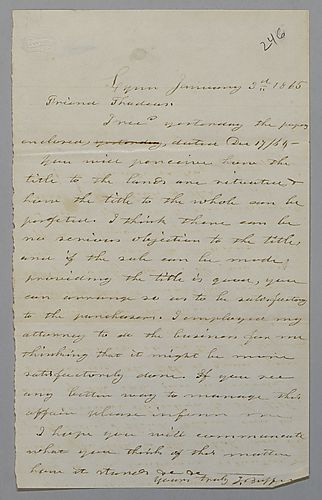 246
Lynn January 3d 1865
Friend Thadeus.
I recd yesterday the papers
enclosed, yesterday, dated Dec 17/64 -
You will perceive how the
title to the lands are situated &
how the title to the whole can be
perfected. I think there can be
no serious objection to the title,
and if the sale can be made,
providing the title is good, you
can arrange so as to be satisfactory
to the purchasers. I employed my
attorney to do the business for me
thinking that it might be more
satisfactorily done. If you see
any better way to manage this
affair please inform me.
I hope you will communicate
what you think of this matter
how it stands &c &c
Yours truly J. Buffum